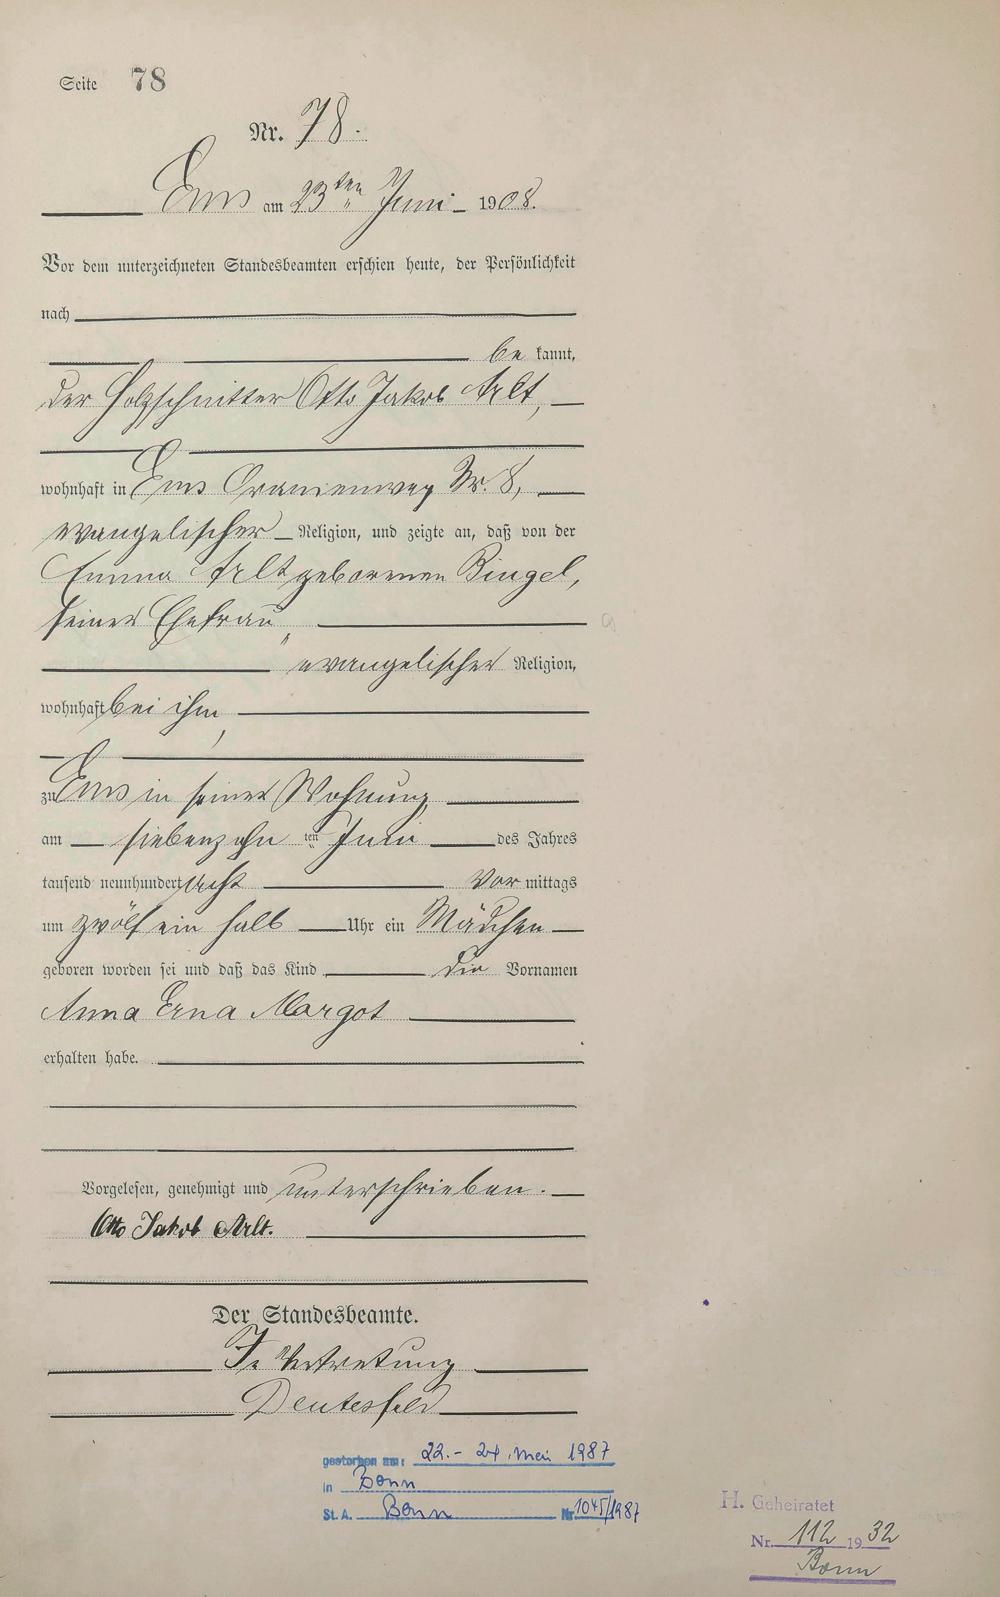 Seite 78
Nr. 78.
Ems am 23ten Juni 1908.
Vor dem unterzeichneten Standesbeamten erschien heute, der Persönlichkeit
nach
be kannt,
der Holzschnitter Otto Jakob Arlt,
wohnhaft in Ems Oranienweg Nr. 8,
evangelischer Religion, und zeigte an, daß von der
Emma Arlt geborenen Bingel,
seiner Ehefrau,
evangelischer Religion,
wohnhaft bei ihm,
zu Ems in seiner Wohnung
am siebenzehn ten Juni des Jahres
tausend neunhundert acht Vor mittags
um zwölf ein halb Uhr ein Mädchen
geboren worden sei und daß das Kind die Vornamen
Anna Erna Margot
erhalten habe.
Vorgelesen, genehmigt und unterschrieben.
Otto Jakob Arlt.
Der Standesbeamte.
In Vertretung
Deutesfeld
gestorben am: 22.- 24. Mai 1987
in Bonn
St. A. Bonn Nr 1045/1987
H. Geheiratet
Nr. 112 1932
Bonn